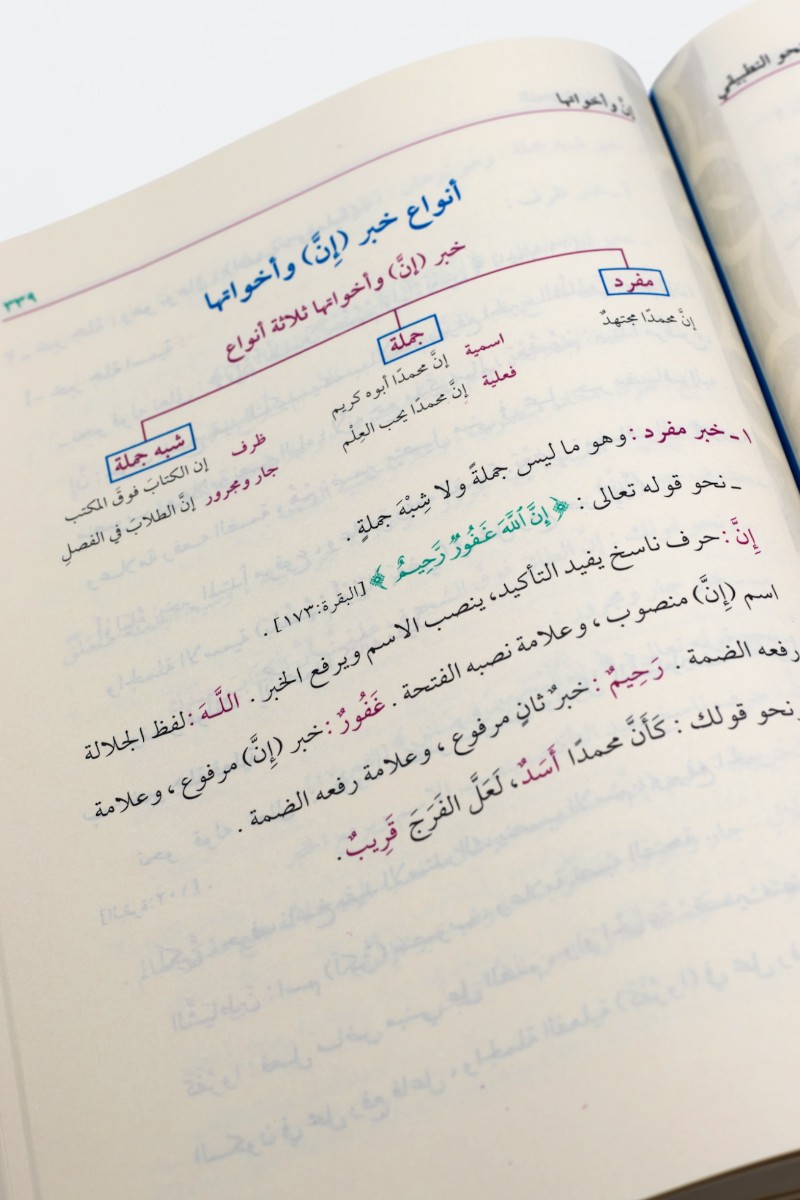 إنَّ وأخواتها
٣٣٩
أنواع خبر (إِنَّ) وأخواتها
خبر (إنَّ) وأخواتها ثلاثة أنواع
مفرد
إنَّ محمدًا مجتهدٌ
جملة
اسمية إنَّ محمدًا أبوه كريم
فعلية إنَّ محمدًا يحب العِلْم
شبه جملة
ظرف إن الكتابَ فوقَ المكتب
جار ومجرور إنَّ الطلابَ في الفصلِ
١ـ خبر مفرد : وهو ما ليس جملةً ولا شِبْهَ جملةٍ .
ـ نحو قوله تعالى : ﴿ إِنَّ ٱللَّهَ غَفُورٌ رَّحِيمٌ ﴾ [البقرة: ١٧٣] .
إِنَّ : حرف ناسخ يفيد التأكيد، ينصب الاسم ويرفع الخبر . اللَّـهَ : لفظ الجلالة
اسم (إنَّ) منصوب ، وعلامة نصبه الفتحة . غَفُورٌ : خبر (إِنَّ) مرفوع ، وعلامة
رفعه الضمة . رَحِيمٌ : خبرٌ ثانٍ مرفوع ، وعلامة رفعه الضمة .
نحو قولك : كَأَنَّ محمدًا أَسَدٌ، لَعَلَّ الفَرَجَ قَرِيبٌ.
التطبيقي